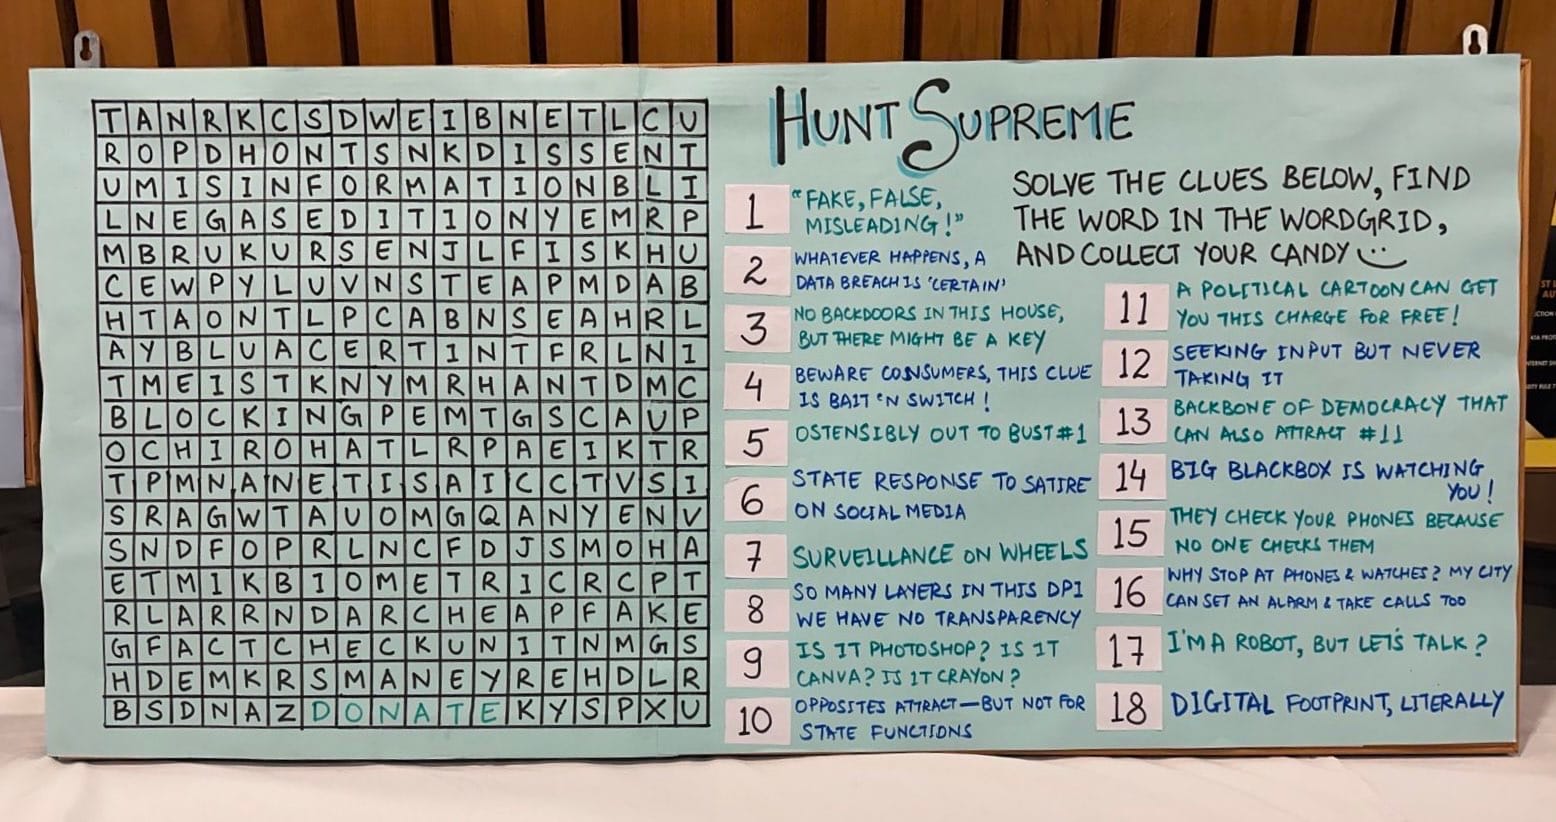 TANRKCSDWEIBNETLCU
ROPDHONTSNKDISSENT
UMISINFORMATIONBLI
LNEGASEDITIONYEMRP
MBRUKURSENJLFISKHU
CEWPYLUVNSTEAPMDAB
HTAONTLPCABNSEAHRL
AYBLUACERTINTFRLNI
TMEISTKNYMRHANTDMC
BLOCKINGPEMTGSCAUP
OCHIROHATLRPAEIKTR
TPMNANETISAICCTVSI
SRAGWTAUOMGQANYENV
SNDFOPRLNCFDJSMOHA
ETMIKBIOMETRICRCPT
RLARRNDARCHEAPFAKE
GFACTCHECKUNITNMGS
HDEMKRSMANEYREHDLR
BSDNAZDONATEKYSPXU
HUNT SUPREME
SOLVE THE CLUES BELOW, FIND
THE WORD IN THE WORDGRID,
AND COLLECT YOUR CANDY
1 "FAKE, FALSE,
MISLEADING!"
2 WHATEVER HAPPENS, A
DATA BREACH IS 'CERTAIN'
3 NO BACKDOORS IN THIS HOUSE,
BUT THERE MIGHT BE A KEY
4 BEWARE CONSUMERS, THIS CLUE
IS BAIT 'N SWITCH!
5 OSTENSIBLY OUT TO BUST #1
6 STATE RESPONSE TO SATIRE
ON SOCIAL MEDIA
7 SURVEILLANCE ON WHEELS
8 SO MANY LAYERS IN THIS DPI
WE HAVE NO TRANSPARENCY
9 IS IT PHOTOSHOP? IS IT
CANVA? IS IT CRAYON?
10 OPPOSITES ATTRACT—BUT NOT FOR
STATE FUNCTIONS
11 A POLITICAL CARTOON CAN GET
YOU THIS CHARGE FOR FREE!
12 SEEKING INPUT BUT NEVER
TAKING IT
13 BACKBONE OF DEMOCRACY THAT
CAN ALSO ATTRACT #11
14 BIG BLACKBOX IS WATCHING
YOU!
15 THEY CHECK YOUR PHONES BECAUSE
NO ONE CHECKS THEM
16 WHY STOP AT PHONES & WATCHES? MY CITY
CAN SET AN ALARM & TAKE CALLS TOO
17 I'M A ROBOT, BUT LET'S TALK?
18 DIGITAL FOOTPRINT, LITERALLY